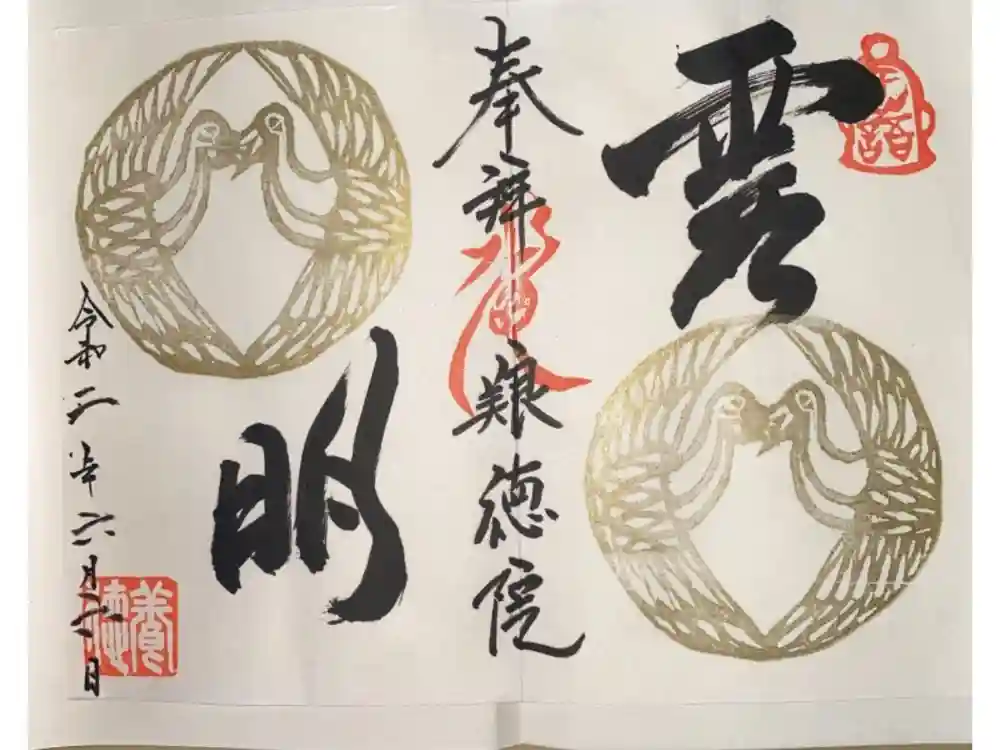 雲
奉拝 養徳院
明
令和二年六月二日
養徳